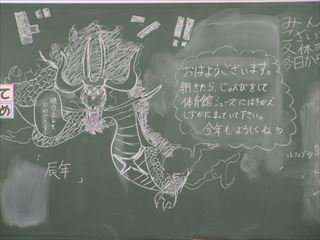 ド
おはようございます。
朝きたら、じゅんびをして
体育館シューズにはきかえ
しずかにまっていて下さい。
今年も、よろしくね
明けまして
おめでとう
辰年
みん
ござい
又休
今日か
て
め